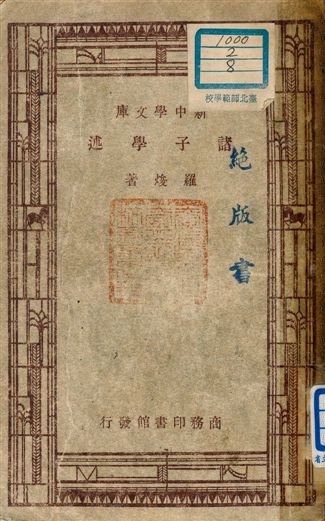 1000
2
8
臺北師範學校
新中學文庫
諸子學述
羅焌著
絕版書
商務印書館發行